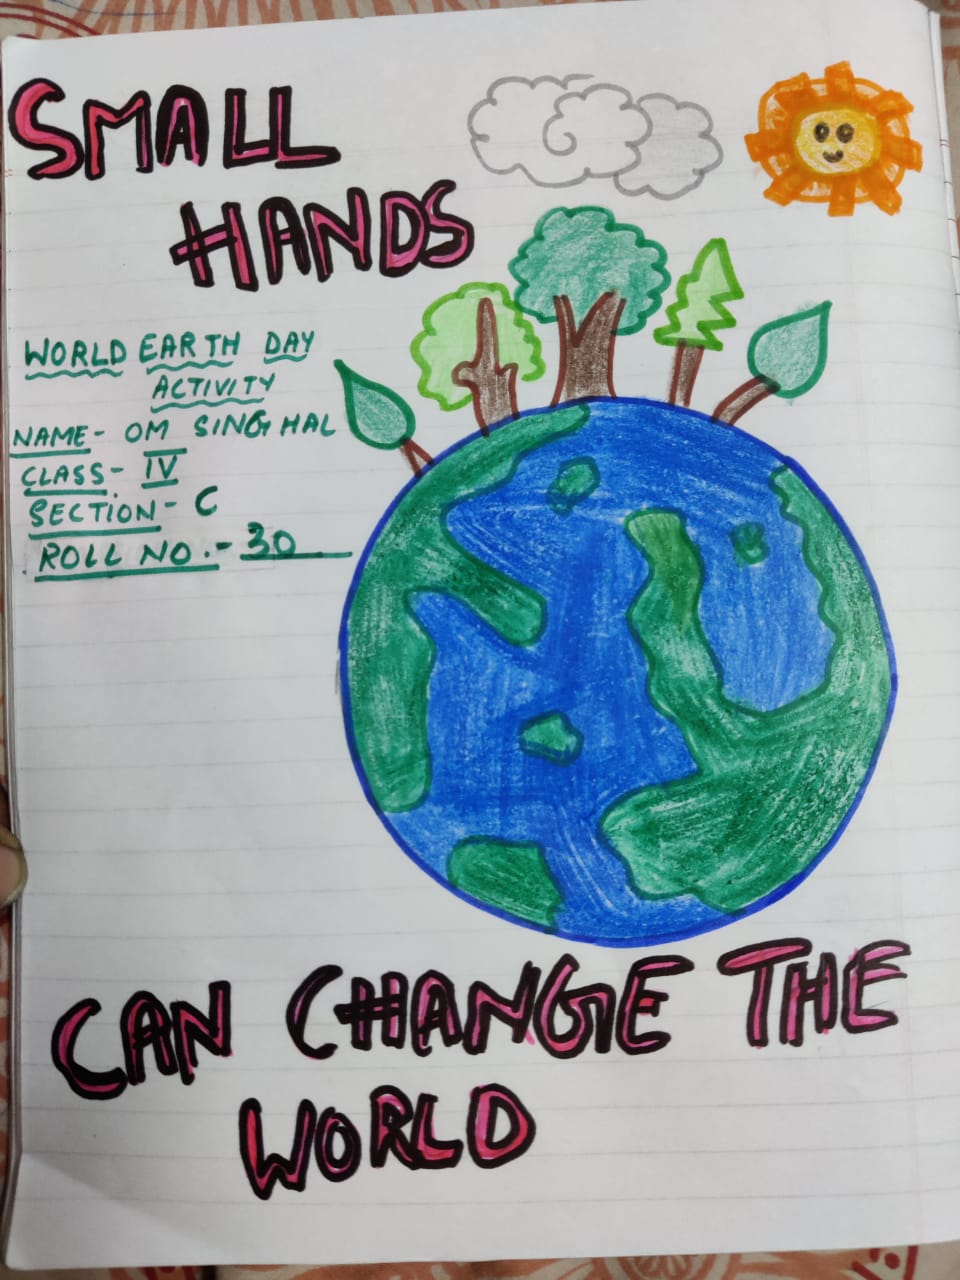 SMALL
HANDS
WORLD EARTH DAY
ACTIVITY
NAME- OM SINGHAL
CLASS- IV
SECTION- C
ROLL NO.- 30
CAN CHANGE THE
WORLD